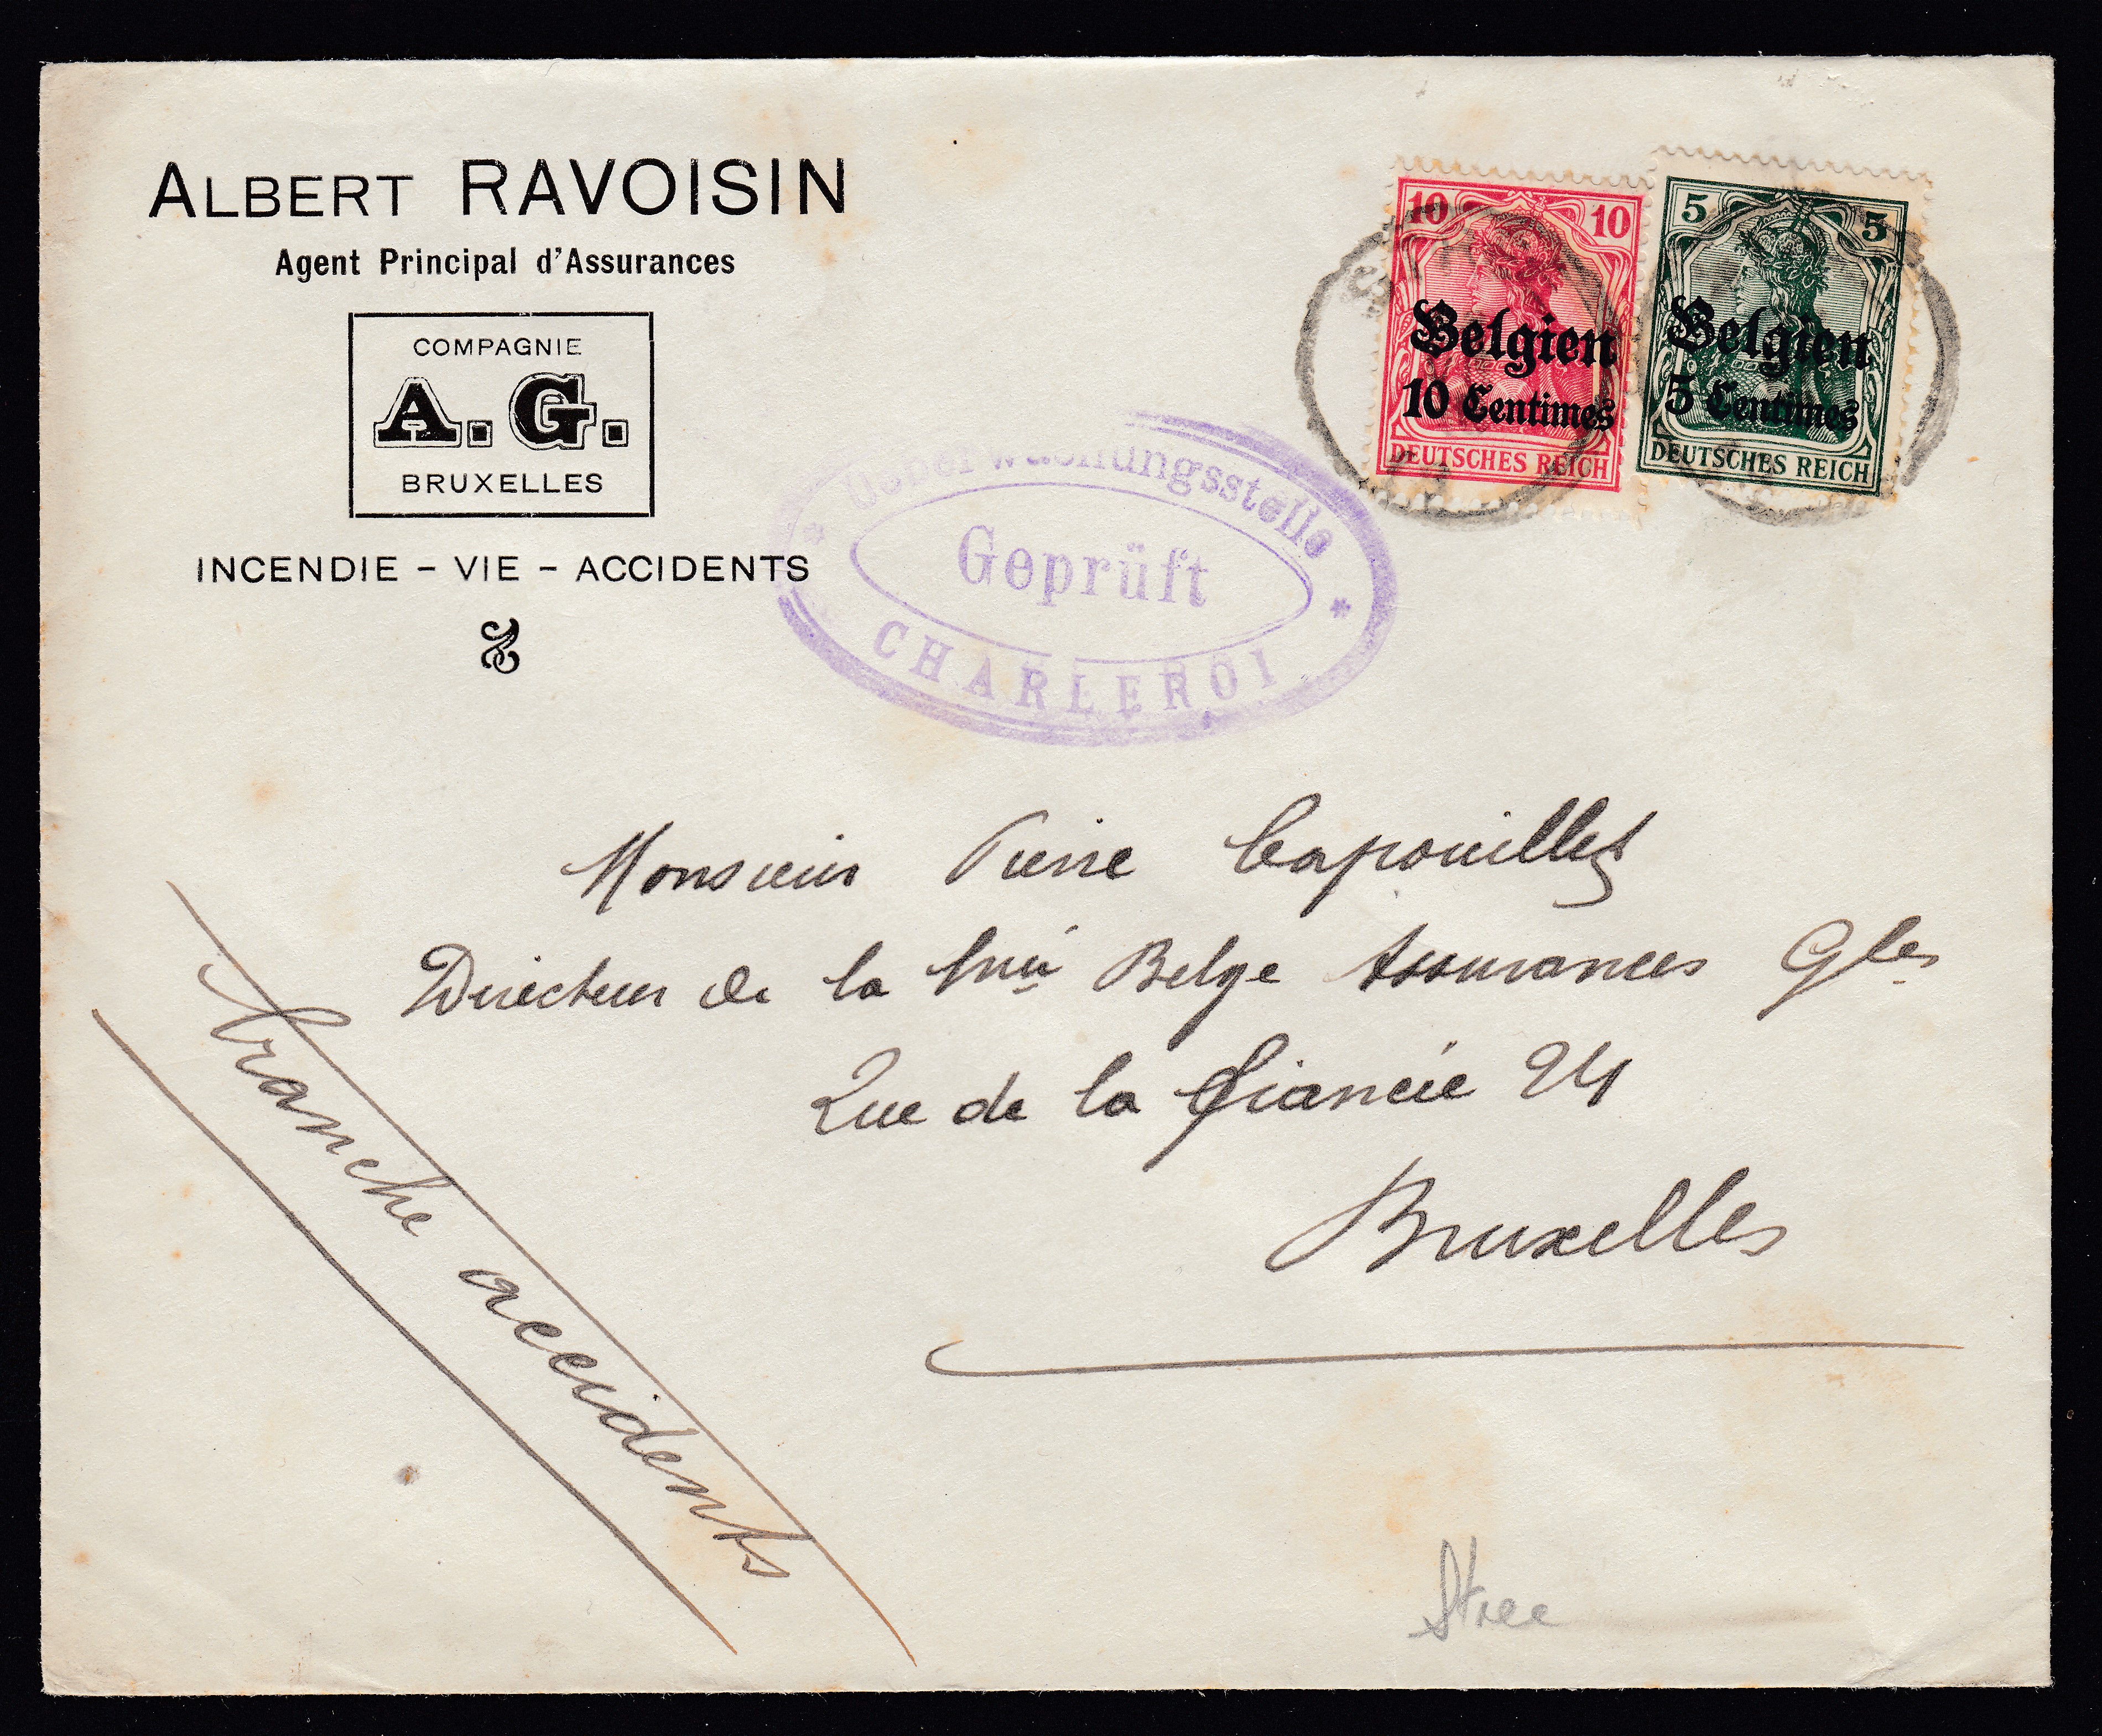 ALBERT RAVOISIN
Agent Principal d'Assurances
COMPAGNIE
A.G.
BRUXELLES
INCENDIE - VIE - ACCIDENTS
10 10
Belgien
10 Centimes
DEUTSCHES REICH
5 5
Belgien
5 Centimes
DEUTSCHES REICH
Ueberwachungsstelle
Geprüft
CHARLEROI
Monsieur Pierre Capouillet
Directeur de la Belge Assurances Gles
Rue de la Fiancée 24
Bruxelles
branche accidents
Stree